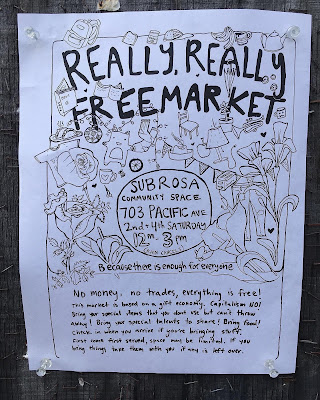 REALLY, REALLY
FREE MARKET
SUBROSA
COMMUNITY
SPACE
703 PACIFIC AVE
2nd + 4th SATURDAY
3 pm
Because there is enough for everyone
No money, no trades, everything is free!
This market is based on a gift economy. Capitalism NO!
Bring your special items that you don't use but can't throw
away! Bring your special talents to share! Bring food!
Check in when you arrive if you're bringing stuff.
First come first served, space may be limited. If you
bring things take them with you if any is left over.